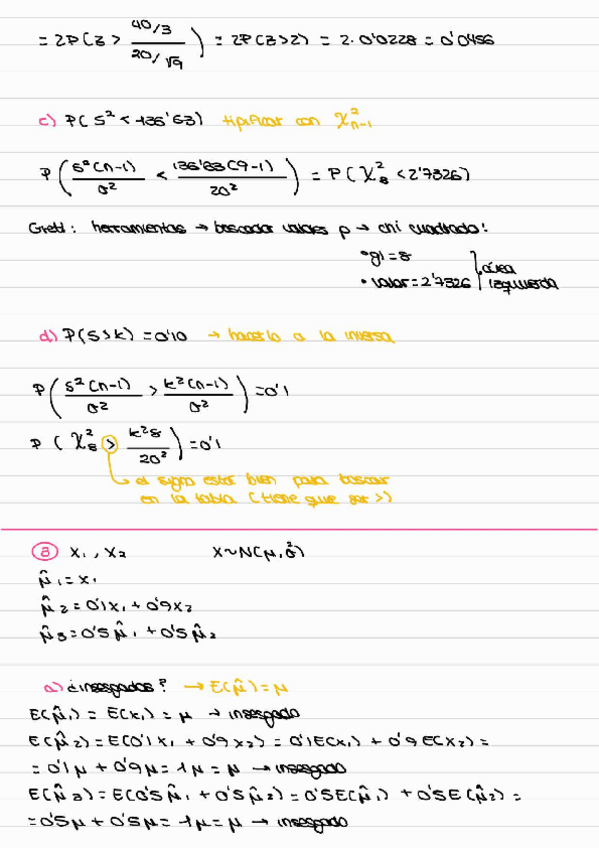 = 2P(z > 40/3 / 20/√9) = 2P(z>2) = 2·0'0228 = 0'0456
c) P(s² < 136'63) tipificar con χ²n-1
P(s²(n-1)/σ² < 136'63(9-1)/20²) = P(χ²8 < 2'7326)
Gretl: herramientas → buscador valores p → chi cuadrado!
• gl = 8
• valor = 2'7326 } área izquierda
d) P(s>k) = 0'10 → hacerlo a la inversa
P(s²(n-1)/σ² > k²(n-1)/σ²) = 0'1
P(χ²8 > k²8/20²) = 0'1
↳ el signo esta bien para buscar
en la tabla (tiene que ser >)
⑧ x₁, x₂ X~N(μ,σ²)
μ̂₁ = x₁
μ̂₂ = 0'1x₁ + 0'9x₂
μ̂₃ = 0'5μ̂₁ + 0'5μ̂₂
a) ¿insesgados? → E(μ̂) = μ
E(μ̂₁) = E(x₁) = μ → insesgado
E(μ̂₂) = E(0'1x₁ + 0'9x₂) = 0'1E(x₁) + 0'9E(x₂) =
= 0'1μ + 0'9μ = 1μ = μ → insesgado
E(μ̂₃) = E(0'5μ̂₁ + 0'5μ̂₂) = 0'5E(μ̂₁) + 0'5E(μ̂₂) =
= 0'5μ + 0'5μ = 1μ = μ → insesgado